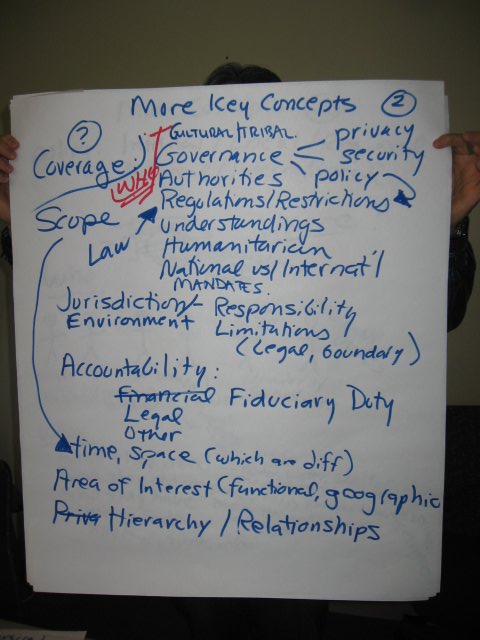 More Key Concepts 2
?
CULTURAL/TRIBAL.
Coverage:
WHO
Governance
privacy
security
policy
Authorities
Scope
Regulations/Restrictions
Law
Understandings
Humanitarian
National vs/Internat'l
MANDATES.
Jurisdiction/ Responsibility
Environment Limitations
(Legal, boundary)
Accountability:
Financial Fiduciary Duty
Legal
Other
time, space (which are diff)
Area of Interest (functional, geographic
Priva Hierarchy / Relationships